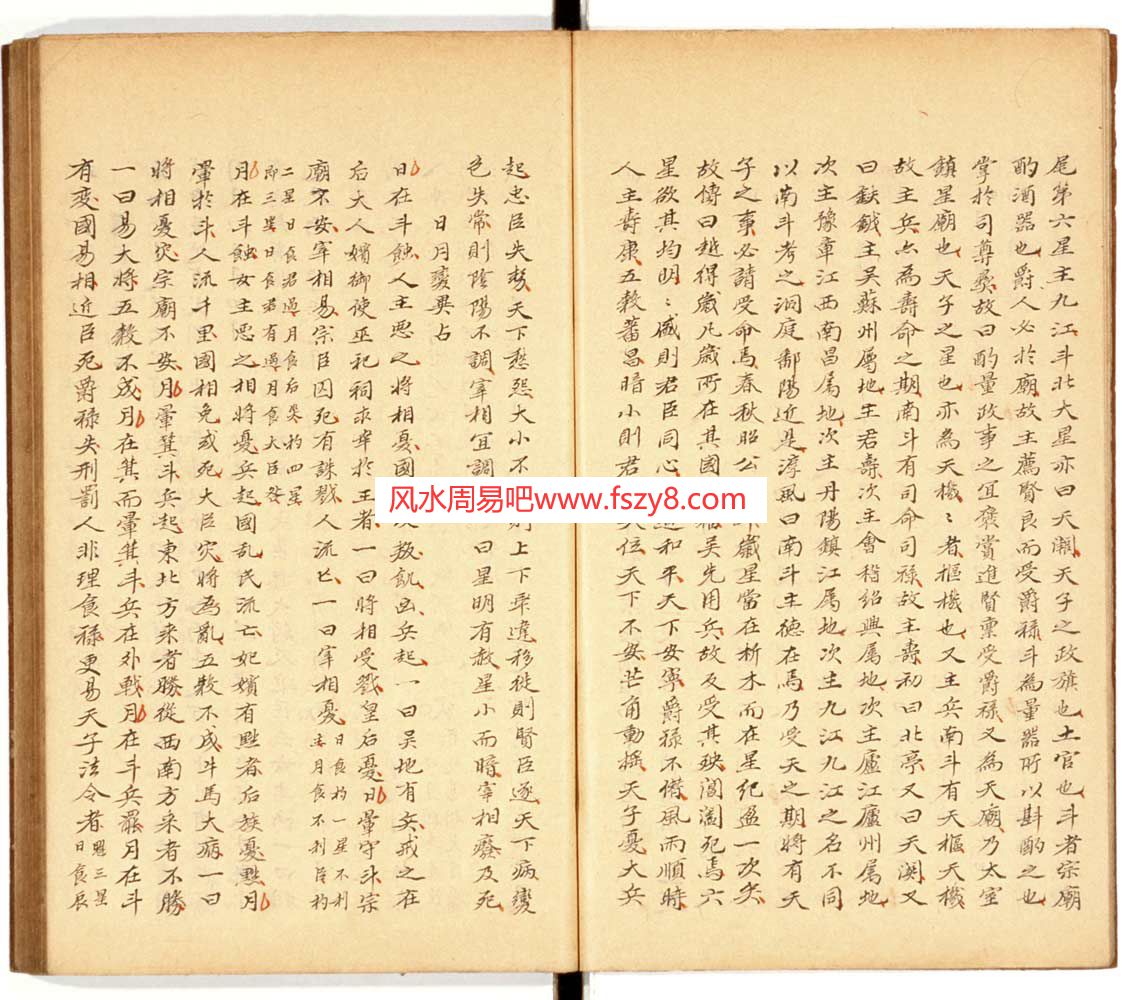 尾第六星主九江斗北大星亦曰天闕天子之政旗也土官也斗者宗廟
酌酒器也爵人必於廟故主薦賢良而受爵禄斗為量器所以斟酌之也
掌於司尊彝故曰酌量政事之宜褒賞進賢稟受爵禄又為天廟乃太室
鎮星廟也天子之星也亦為天機〻者樞機也又主兵南斗有天樞天機
故主兵亦為壽命之期南斗有司命司禄故主壽初曰北亭又曰天闕又
曰鈇鉞主吳蘇州屬地主君壽次主會稽紹興屬地次主廬江廬州屬地
次主豫章江西南昌属地次主丹陽鎮江属地次主九江九江之名不同
以南斗考之洞庭鄱陽近是淳風曰南斗主德在焉乃受天之期將有天
子之事必請受命焉春秋昭公 歲星當在析木而在星紀盈一次矣
故傳曰越得歲凡歲所在其國 吳先用兵故反受其殃闔閭死焉六
星欲其均明〻盛則君臣同心 和平天下安寧爵禄不僣風雨順時
人主壽康五穀蕃昌暗小則君 失位天下不安芒角動摇天子憂大兵
起忠臣失勢天下愁怨大小不 則上下乖違移徙則賢臣逐天下病變
色失常則陰陽不調宰相宜調 曰星明有赦星小而暗宰相廢及死
日月變異占
日在斗蝕人主惡之將相憂國 飢凶兵起一曰吳地有兵戒之在
后大人嬪御使巫祀祠求幸於王者一曰將相受戮皇后憂日暈守斗宗
廟不安宰相易宗臣囚死有誅戮人流亡一曰宰相憂 日食杓一星不利
月食不利臣杓
二星日食君過月食后哭杓四星
即三異日食君有過月食大臣安
月在斗蝕女主惡之相將憂兵起國亂民流亡妃嬪有黜者后族憂黜月
暈於斗人流千里國相免或死大臣灾將為亂五穀不成牛馬大病一曰
將相憂灾宗廟不安月暈箕斗兵起東北方来者勝從西南方来者不勝
一曰易大將五穀不成月在其而暈其斗兵在外戰月在斗兵羅月在斗
有变國易相近臣死爵禄失刑罰人非理食禄更易天子法令者 三星
日食辰
风水周易吧www.fszy8.com